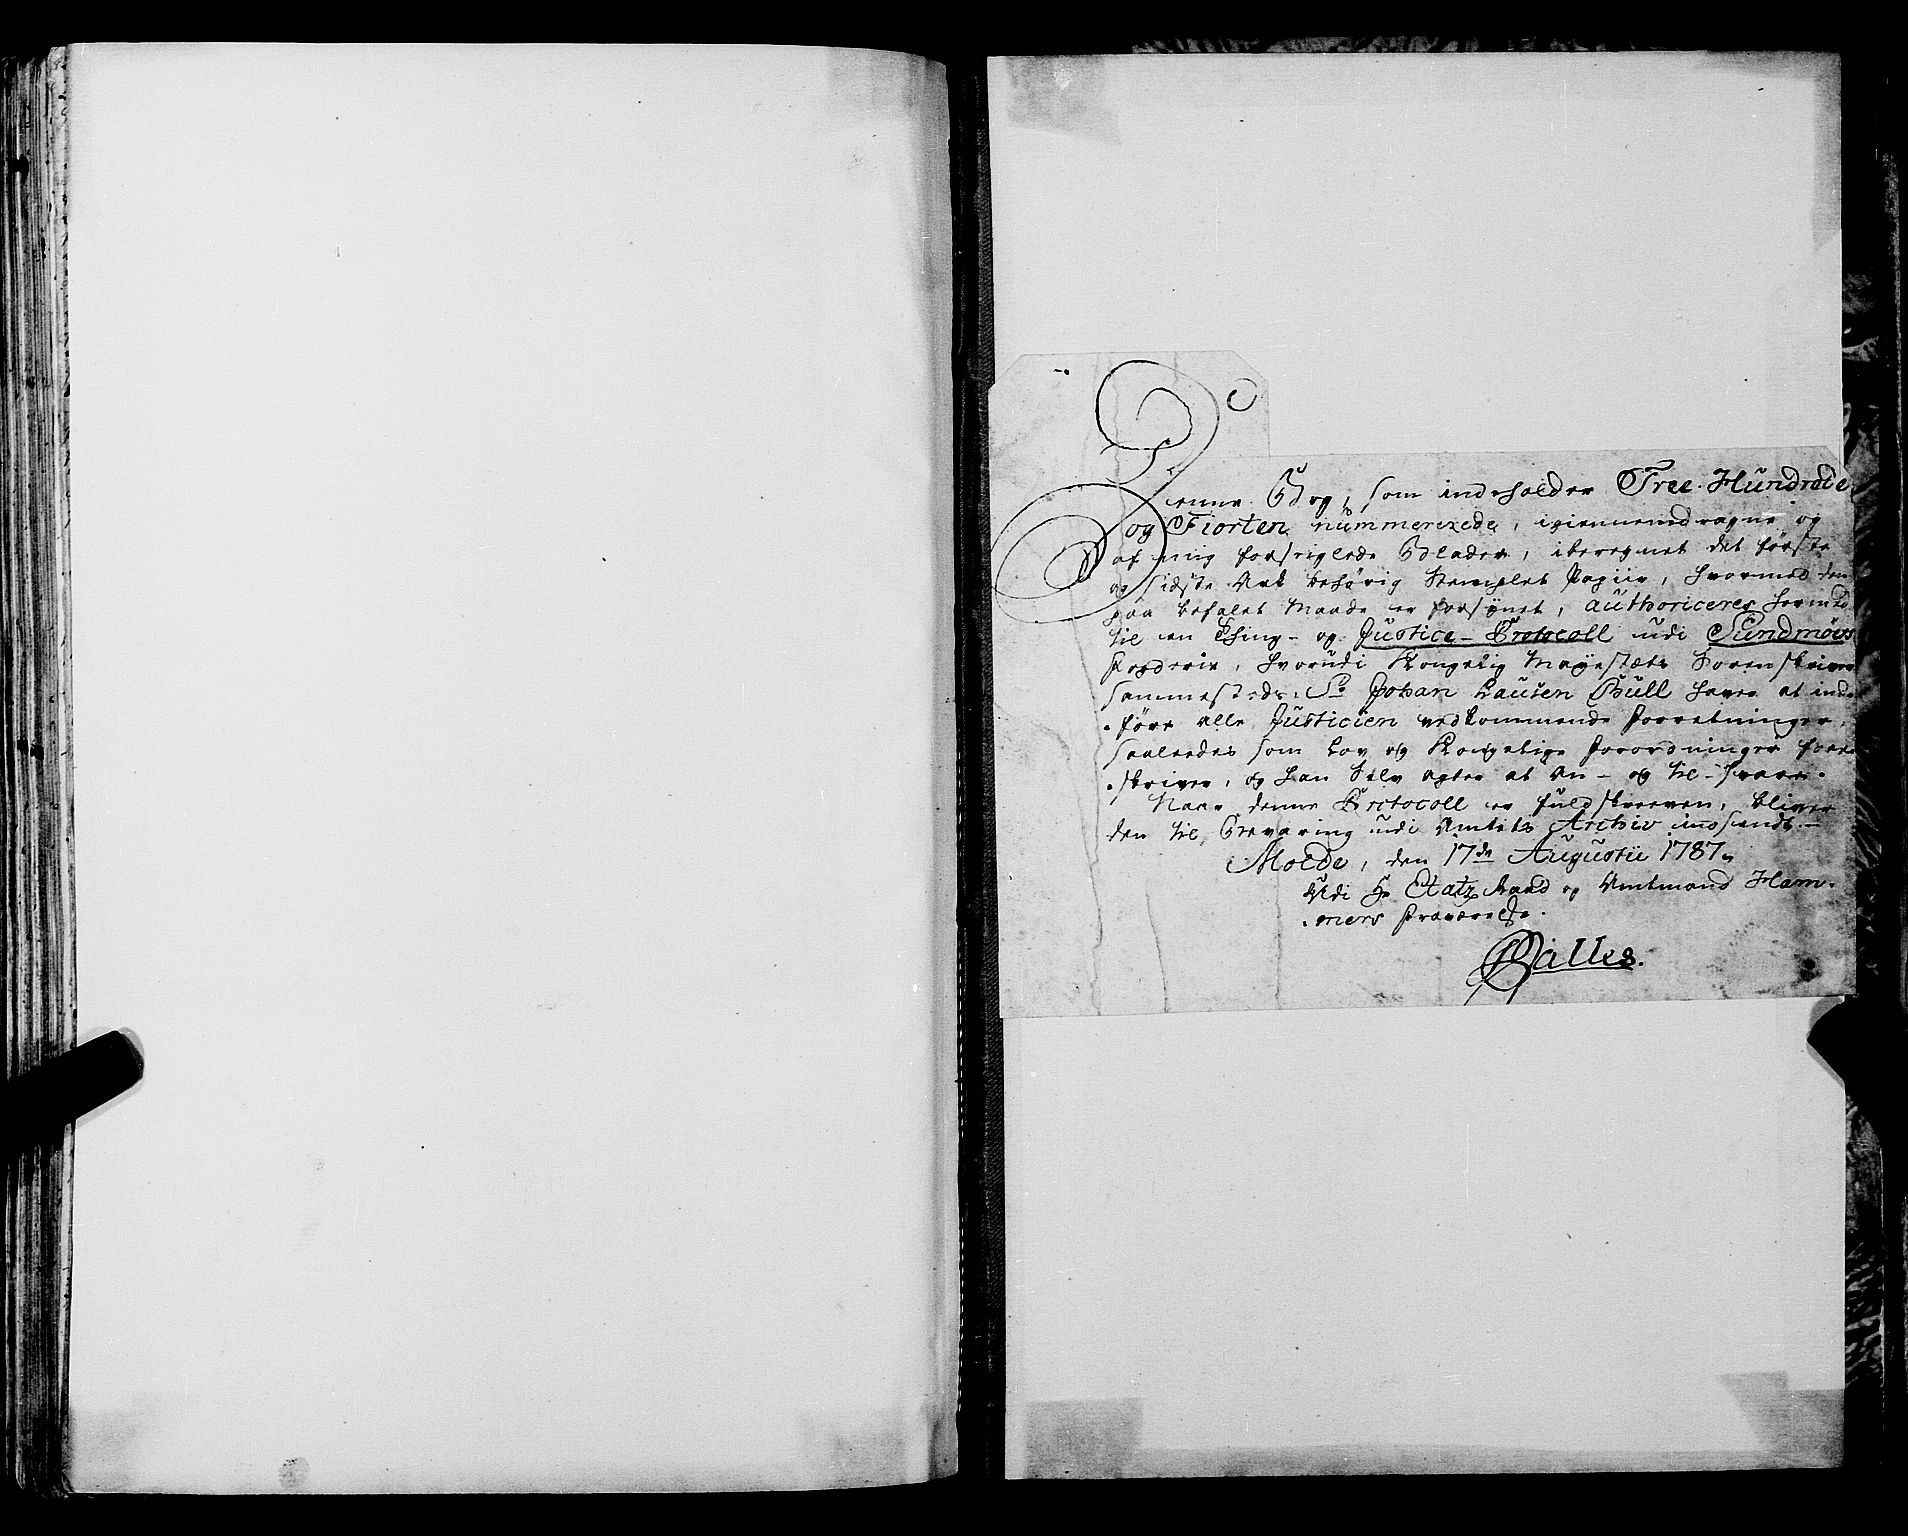 Denne Bog, som indeholder Tree Hundrede
og Fiorten nummererede, igiennemdragne og
af mig forseiglede Blader, iberegnet det første
og sidste Ark behørig Stemplet Papiir, hvormed den
paa befalet Maade er forsÿnet, authoriceres hermed
til en Thing- og Justice-Protocoll udi Sundmørs
Fogderie, hvorudi Kongelig Mayestæts Sorenskriver
sammesteds, Sr Johan Lausen Bull haver at ind-
føre alle Justicien vedkommende Forretninger,
saaledes som Lov og Kongelige Forordninger fore-
skriver, og han Selv agter at An- og til-svare.
Naar denne Protocoll er fuldskreeven, bliver
den til Bevaring udi Amtets Archiv indsendt.-
Molde, den 17de Augustii 1787.
Udi Hr Etatz Raad og Amtmand Ham-
mers Fraværelse.
Balles.